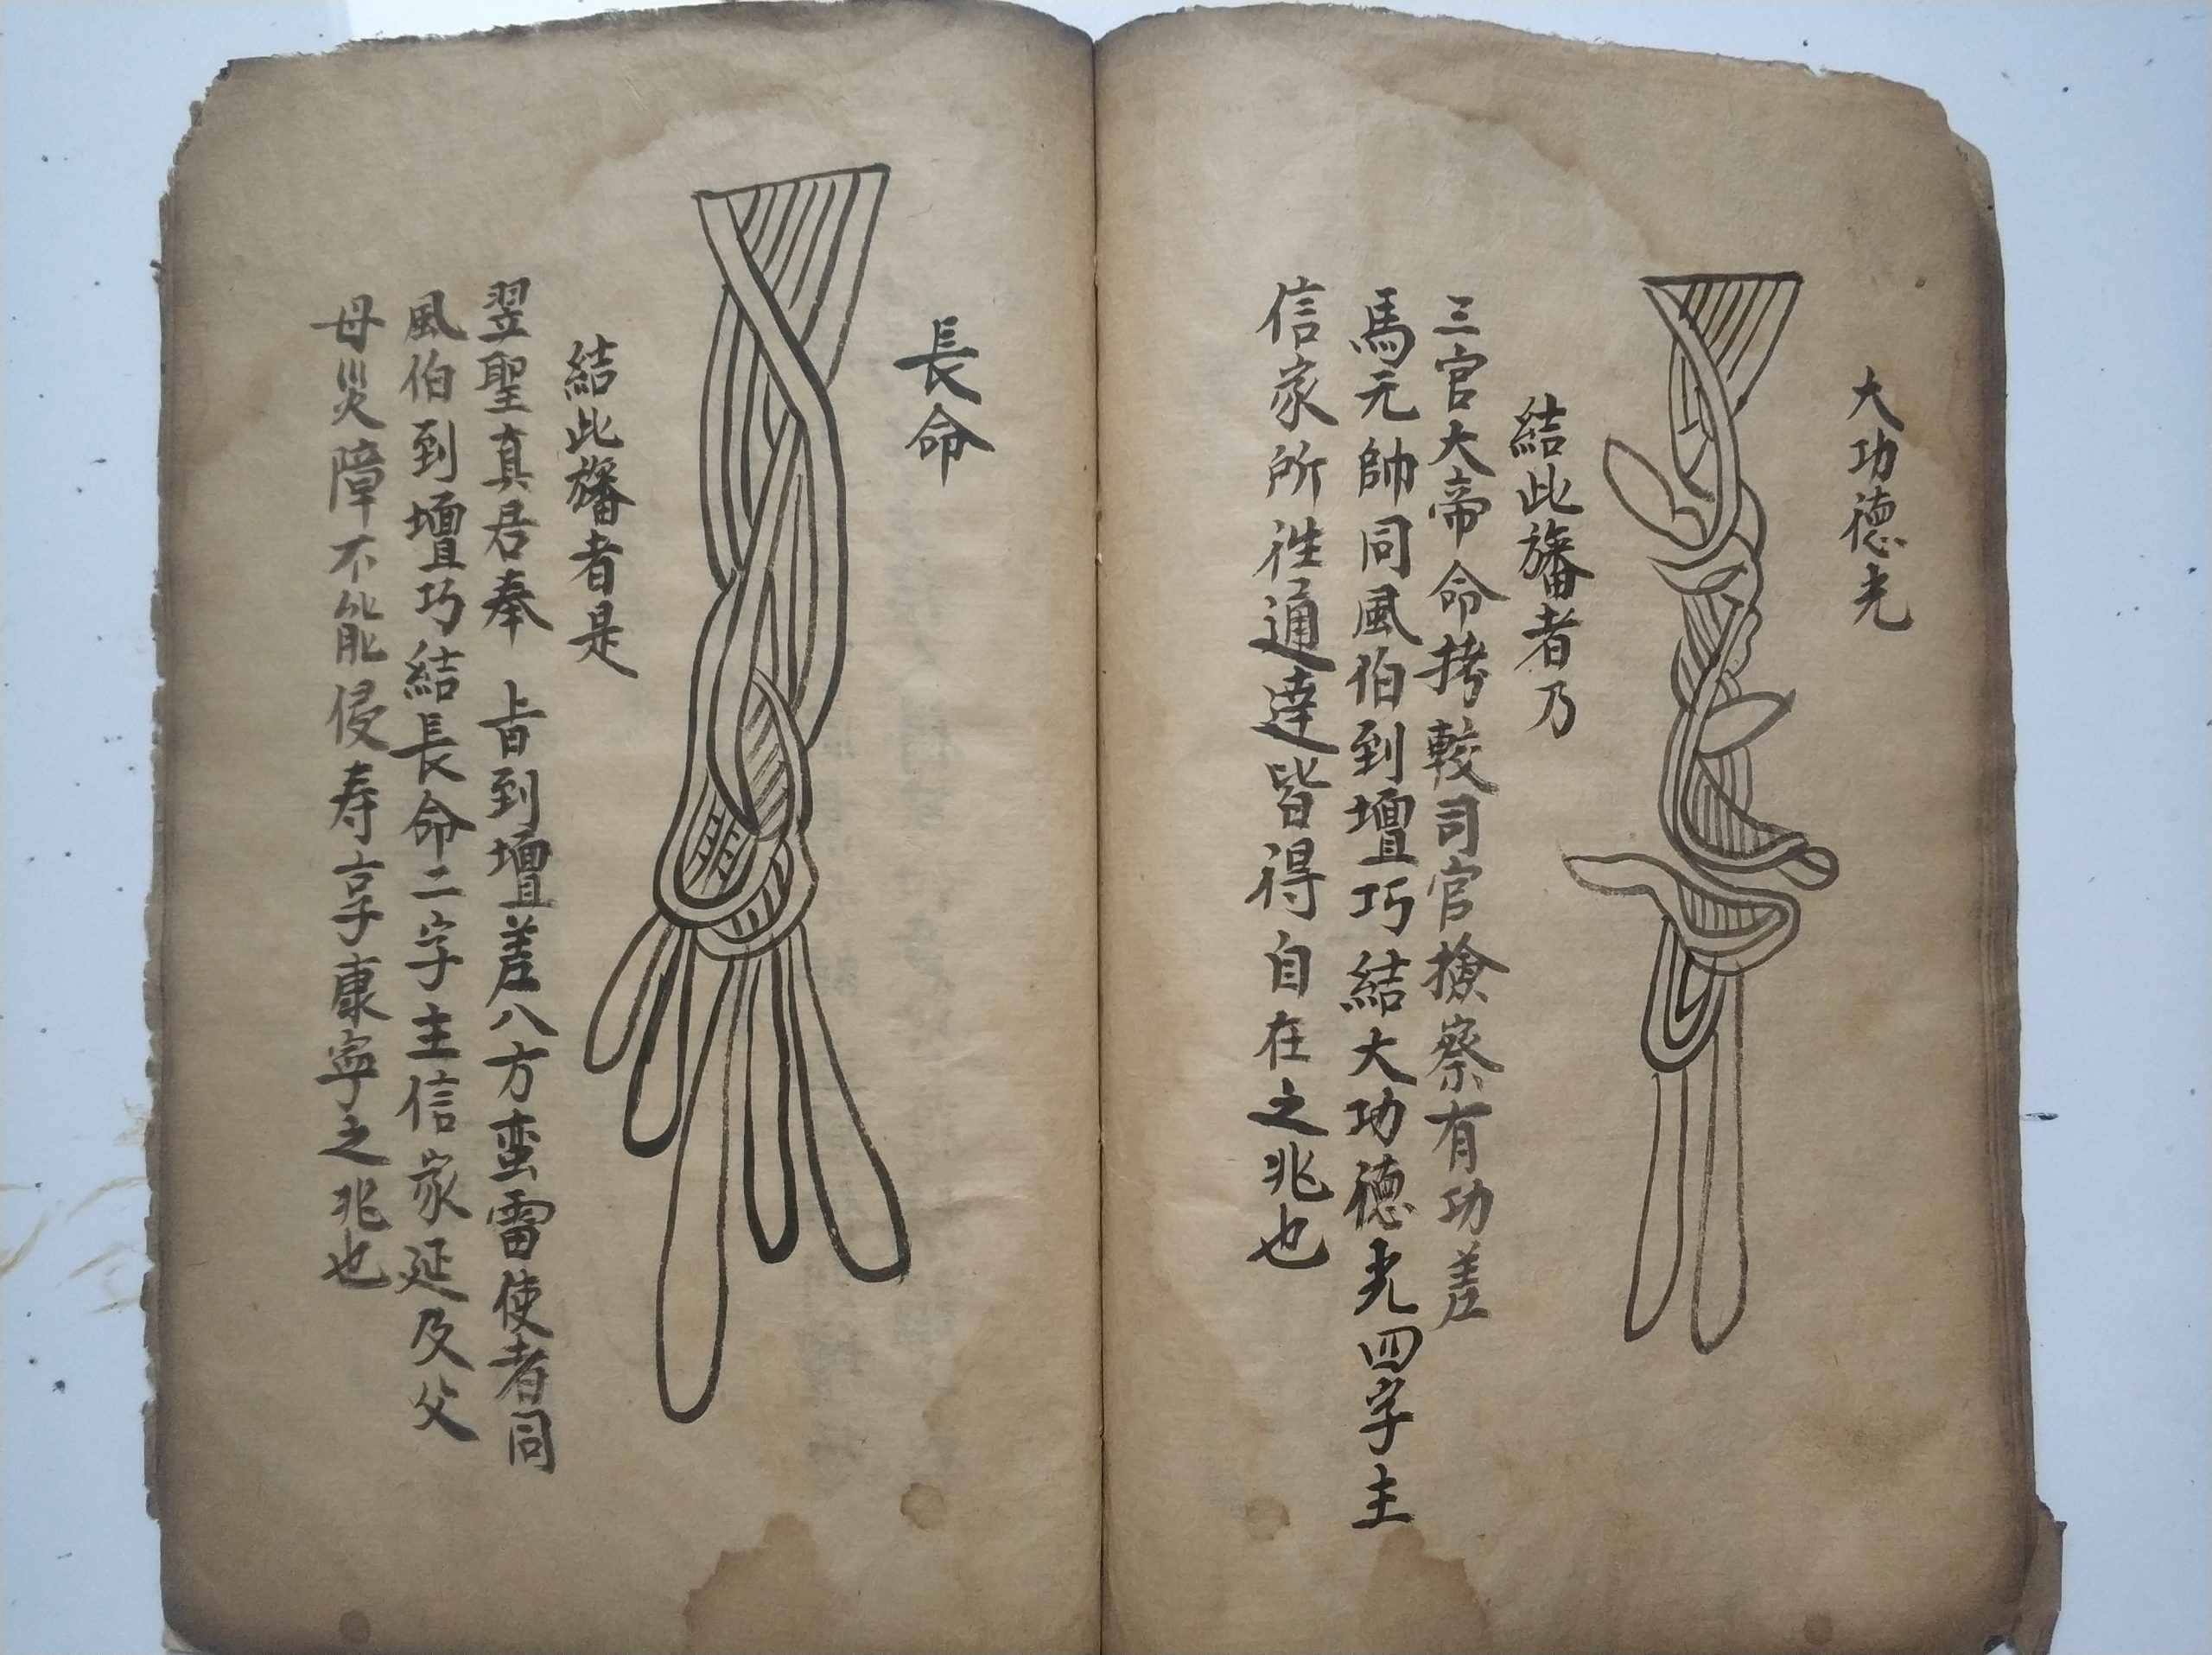 大功德光
結此旛者乃
三官大帝命拷較司官撿察有功差
馬元帥同風伯到壇巧結大功德光四字主
信家所徃通達皆得自在之兆也
長命
結此旛者是
翌聖真君奉 旨到壇差八方蛮雷使者同
風伯到壇巧結長命二字主信家延及父
母災障不能侵寿享康寧之兆也